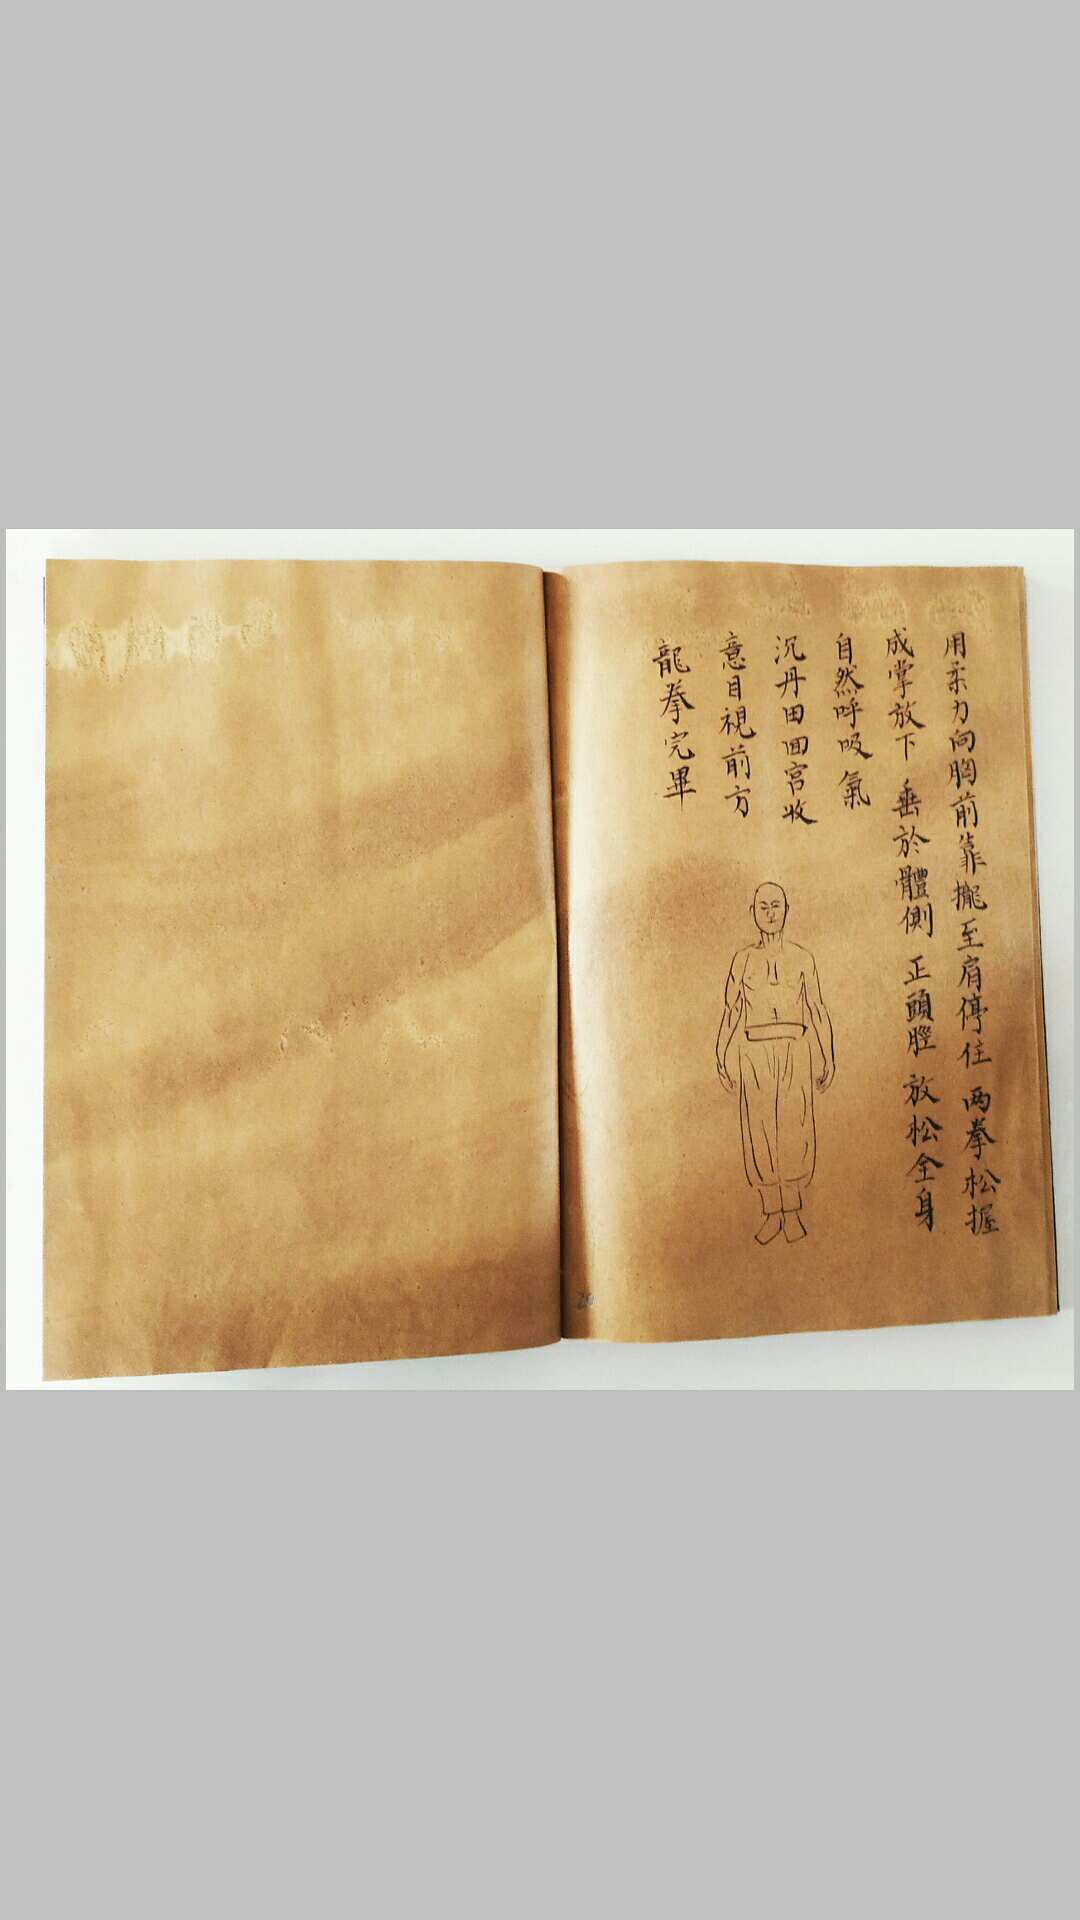 用柔力向胸前靠攏至肩停住 两拳松握
成掌放下 垂於體側 正頭脛 放松全身
自然呼吸 氣
沉丹田回宫收
意目視前方
龍拳完畢